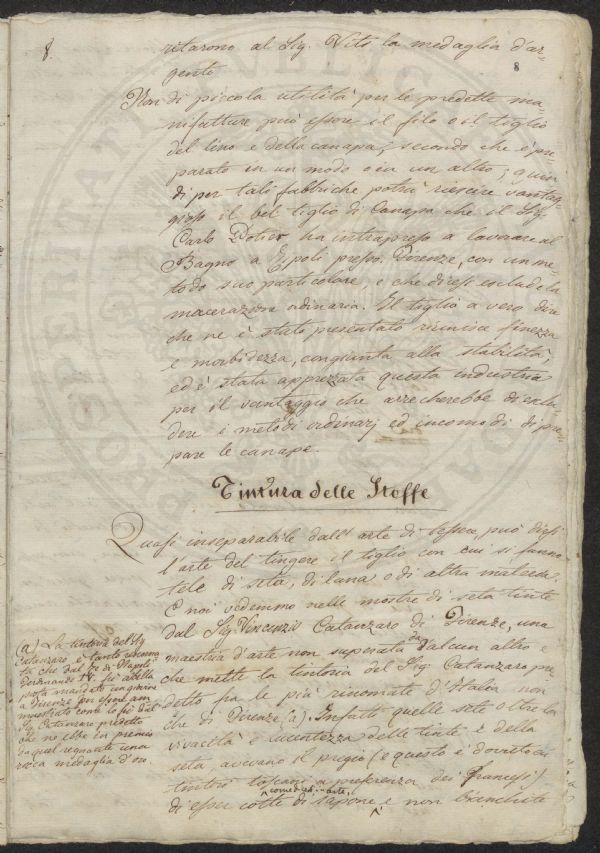 8.
ritarono al Sig. Vito la medaglia d'ar=
gento
8
Non di piccola utilità per le predette ma=
nifatture può essere il filo o il tiglio
del lino e della canapa, secondo che è pre=
parato in un modo o in un altro; quin
di per tali fabbriche potrà riescire vantag=
gioso il bel tiglio di Canapa che il Sig.
Carlo ha intrapreso a lavorare al
Bagno a Ripoli presso Firenze, con un me=
todo suo particolare, e che dicesi escluda la
macerazione ordinaria. Il tiglio a vero dire
che ne è stato presentato riunisce finezza
e morbidezza, congiunta alla stabilità,
ed è stata apprezzata questa industria
per il vantaggio che arrecherebbe di esclu
dere i metodi ordinarj ed incomodi di pre=
pare le canape.
Tintura delle Stoffe
Quasi inseparabile dall'arte di tessere, può dirsi
l'arte del tingere il tiglio con cui si fanno
tele di seta, di lana o di altra materia.
E noi vedemmo nelle mostre di seta tinte
dal Sig. Vincenzio Catanzaro di Firenze, una
maestria d'arte non superata da alcun altro e
che mette la tintoria del Sig. Catanzaro pre=
detto fra le più rinomate d'Italia non
che di Firenze (a). Infatti quelle sete oltre la
vivacità e lucentezza delle tinte e della
seta avevano il pregio (e questo è dovuto ai
tintori toscani a preferenza dei francesi)
di esser cotte di sapone, e non bianchite
(a) La tintoria del Sig.
Catanzaro è tanto rinoma
ta che dal Re di Napoli
Ferdinando IV. fu a bella
posta mandato un giovine
a Firenze per esservi am
maestrato come lo fu dal
Sig. Catanzaro predetto
che ne ebbe in premio
da quel regnante una
ricca medaglia d'oro.